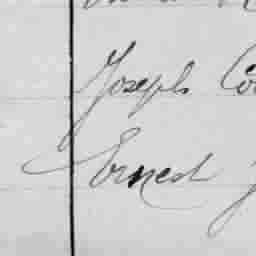 Joseph Co
Ernest